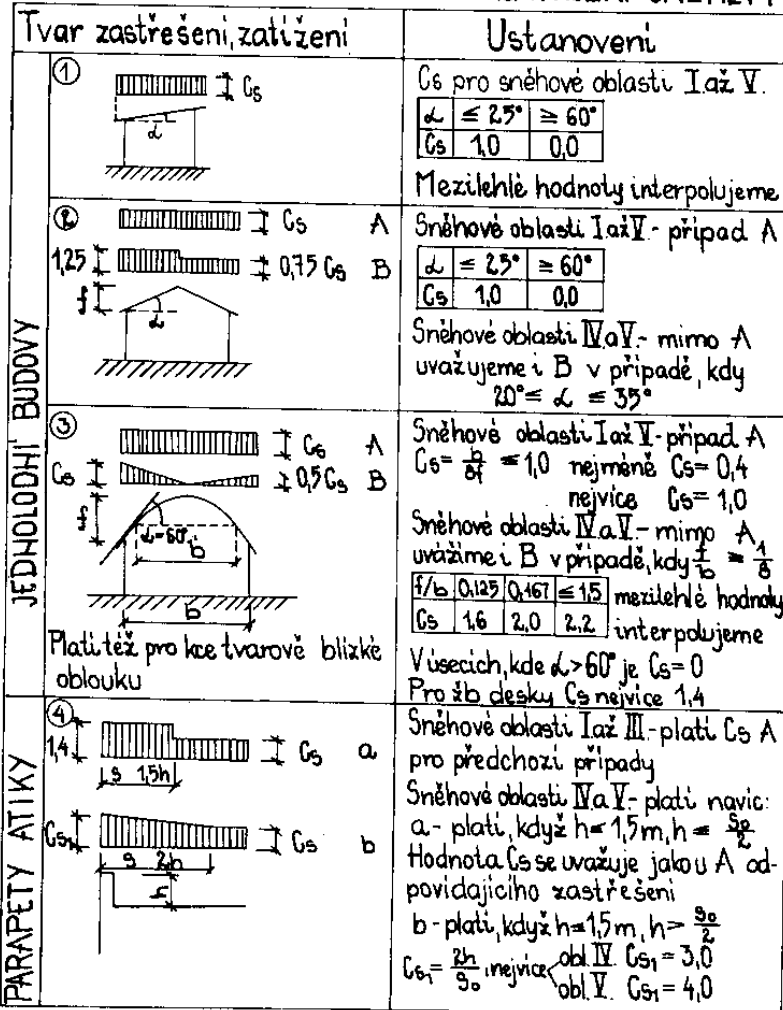 Tvar zastřešení, zatížení
Ustanovení
JEDNOLODNÍ BUDOVY
1
Cs
α
Cs pro sněhové oblasti I až V.
α ≤ 25° ≥ 60°
Cs 1,0 0,0
Mezilehlé hodnoty interpolujeme
2
Cs A
1,25 0,75 Cs B
f
α
Sněhové oblasti I až V - případ A
α ≤ 25° ≥ 60°
Cs 1,0 0,0
Sněhové oblasti IV a V. - mimo A
uvažujeme i B v případě, kdy
20° ≤ α ≤ 35°
3
Cs A
Cs 0,5 Cs B
f
α=60°
b
b
Platí též pro kce tvarově blízké
oblouku
Sněhové oblasti I až V - případ A
Cs = b/8f ≤ 1,0 nejméně Cs = 0,4
nejvíce Cs = 1,0
Sněhové oblasti IV a V. - mimo A
uvážíme i B v případě, kdy f/b ≥ 1/8
f/b 0,125 0,167 ≤ 1,5 mezilehlé hodnoty
Cs 1,6 2,0 2,2 interpolujeme
V úsecích, kde α > 60° je Cs = 0
Pro žb desky Cs nejvíce 1,4
PARAPETY ATIKY
4
1,4 Cs a
s 1,5h
Cs1 Cs b
s 2h
h
Sněhové oblasti I až III - platí Cs A
pro předchozí případy
Sněhové oblasti IV a V - platí navíc:
a - platí, když h = 1,5 m, h = s0/2
Hodnota Cs se uvažuje jako u A od-
povídajícího zastřešení
b - platí, když h = 1,5 m, h > s0/2
Cs1 = 2h/s0, nejvíce obl. IV. Cs1 = 3,0
obl. V. Cs1 = 4,0